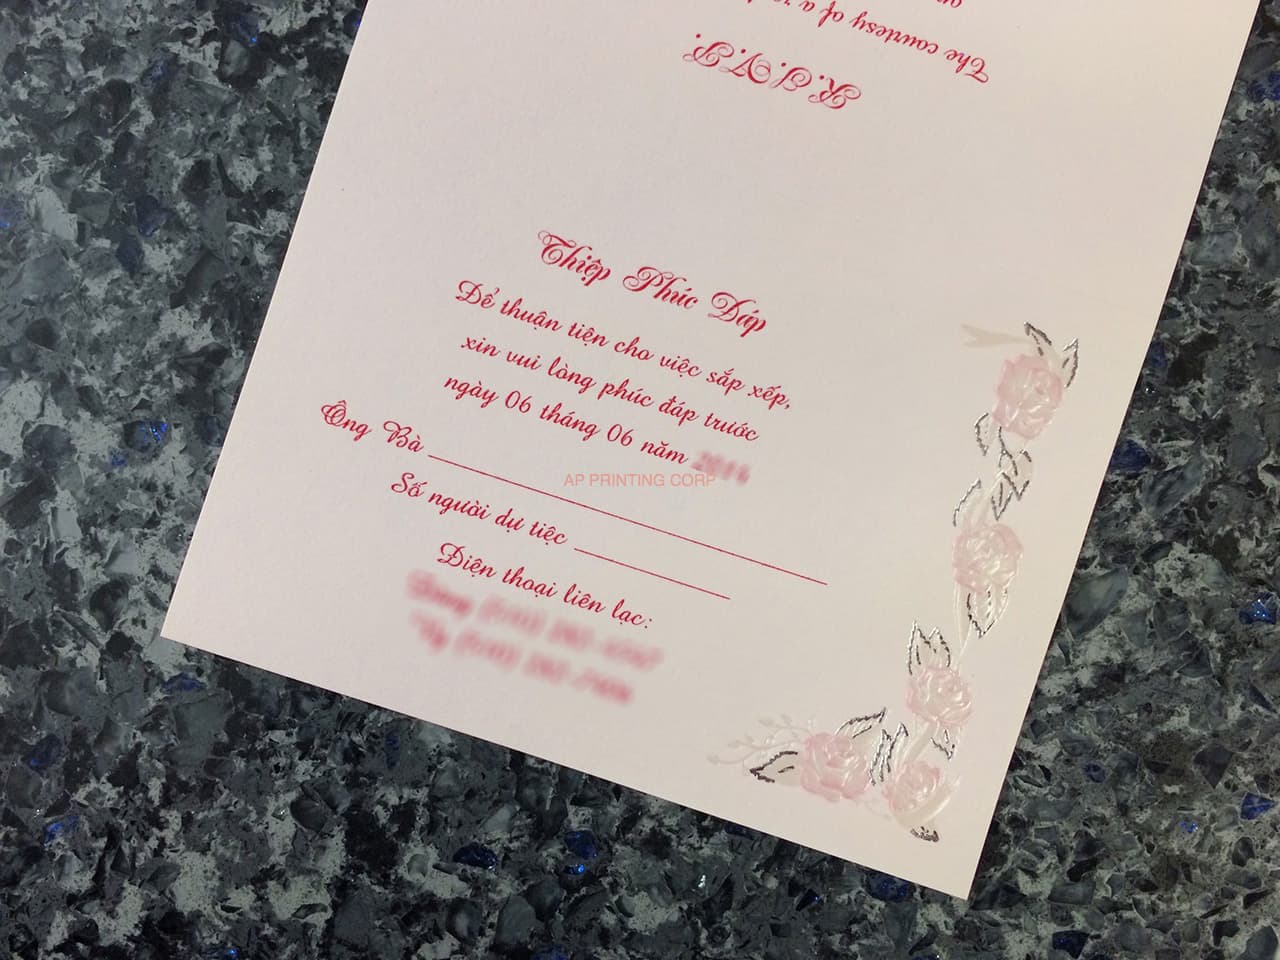 The courtesy of a
R.S.V.P.
Thiệp Phúc Đáp
Để thuận tiện cho việc sắp xếp,
xin vui lòng phúc đáp trước
ngày 06 tháng 06 năm
AP PRINTING CORP
Ông Bà
Số người dự tiệc
Điện thoại liên lạc: